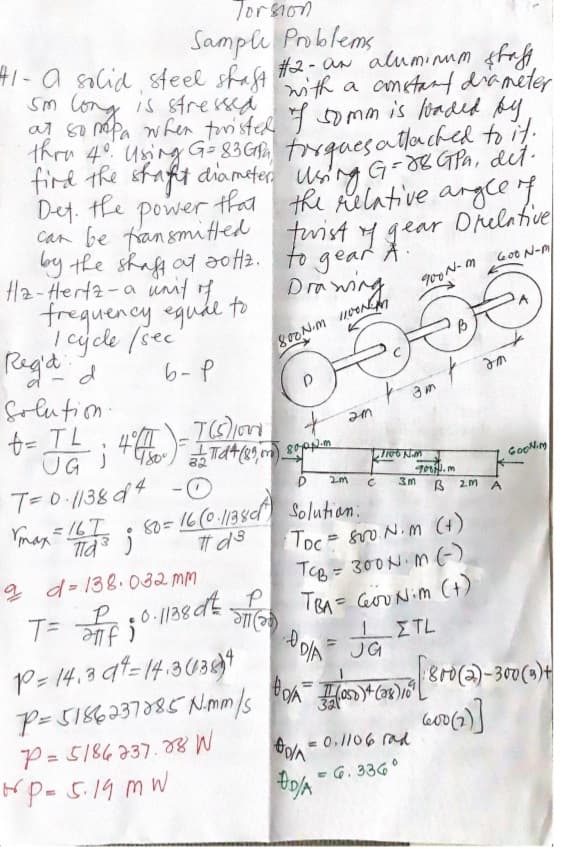 Torsion
Sample Problems
#1- a solid steel shaft
5m long is stressed
at 80 mpa when twisted
thru 4°. Using G=83GPa,
find the shaft diameter.
Det. the power that
can be transmitted
by the shaft at 20Hz.
Hz-Hertz-a unit of
frequency equal to
1 cycle/sec
Req'd:
a-d b-P
Solution
t= TL/JG ; 4°(π/180°) = T(5)1000/(1/32 πd⁴(83,000))
T=0.1138d⁴ -①
τmax = 16T/πd³ ; 80= 16(0.1138d⁴)/πd³
a d=138.032mm
T= P/2πf ; 0.1138d⁴ P/2π(20)
P=14.3d⁴=14.3(138)⁴
P=5186237285 N.mm/s
P=5186237.28 W
or P= 5.19 MW
#2-an aluminum shaft
with a constant diameter
of 50mm is loaded by
torques attached to it.
Using G=28GPa, det.
the relative angle of
twist of gear D relative
to gear A.
Drawing
800N.m
1100N.m
900N-m
600N-m
D
C
B
A
2m
3m
2m
800N.m
1100N.m
900N.m
600N.m
D 2m C 3m B 2m A
Solution:
TDC = 800 N.m (+)
TCB = 300 N.m (-)
TBA = 600 N.m (+)
θD/A = 1/JG ΣTL
θD/A = 1/(π/32(.050)⁴(28)10⁹) [800(2)-300(3)+
600(2)]
θD/A = 0.1106 rad
θD/A = 6.336°